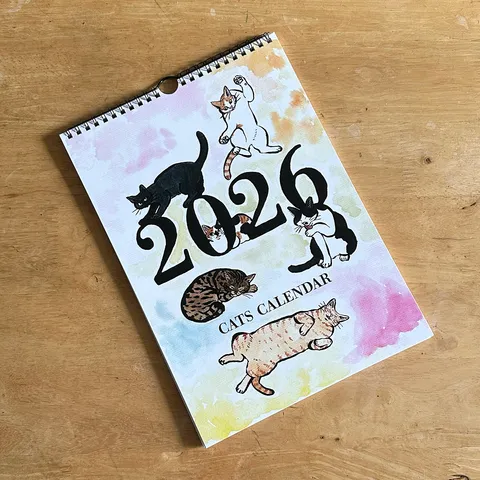 2026
CATS CALENDAR